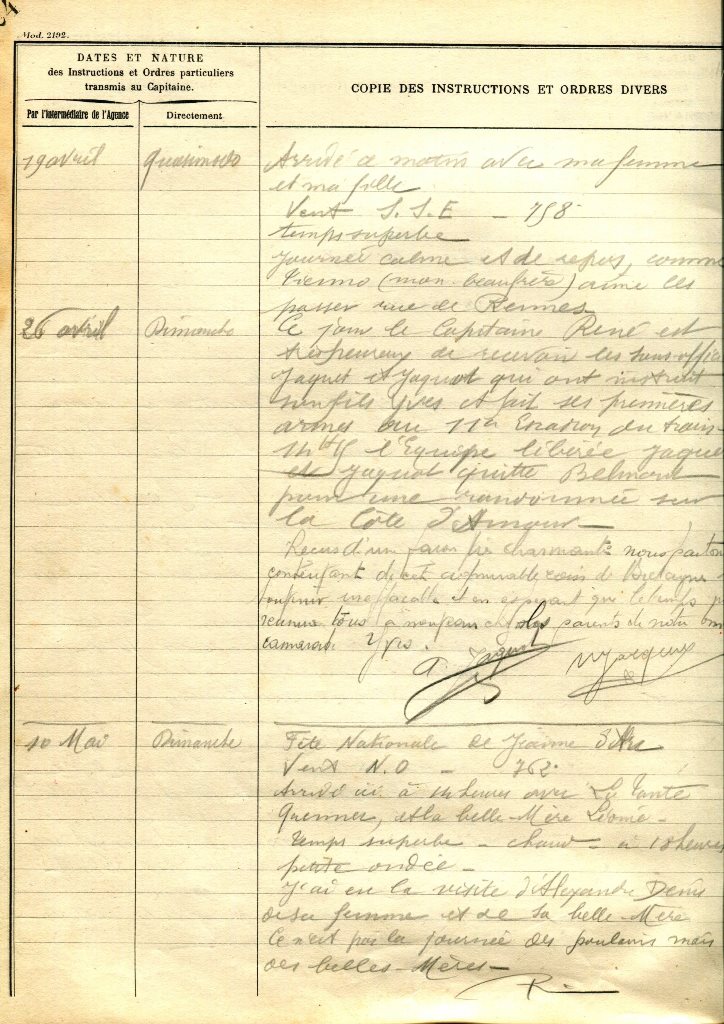 Mod. 2192.
DATES ET NATURE
des Instructions et Ordres particuliers
transmis au Capitaine.
Par l'Intermédiaire de l'Agence
Directement
COPIE DES INSTRUCTIONS ET ORDRES DIVERS
19 avril Quasimodo Arrivé ce matin avec ma femme
et ma fille
Vent S.S.E — 758
temps superbe
Journée calme et de repos, comme
(mon beaufrère) aime les
passer rue de Rennes
26 avril Dimanche Ce jour le Capitaine René est
très heureux de recevoir les sous-offici
Jaquet et Jaquot qui ont instruit
son fils Yves et fait ses premières
armes au 11em Escadron du train
14h45 l'Equipe libérée Jaquet
et Jaquot quitte
pour une randonnée sur
la Côte d'Amour —
Recus d'un facon très charmante nous parton
de cet admirable coin de Bretagne
souvenir ineffacable et en esperant que le temps
reunira tous à nouveau chez les parents de notre
camarade Yves.
10 Mai Dimanche Fête Nationale de Jeanne d'Arc
Vent N.O — 762
Arrivé ici à 14 heures avec La Tante
et la belle-Mère Léonie —
Temps superbe — chaud — à 18 heures
petite ondée —
J'ai eu la visite d'Alexandre Denis
de sa femme et de sa belle-Mère
Ce n'est pas la journée des poulains mais
des belles-Mères —